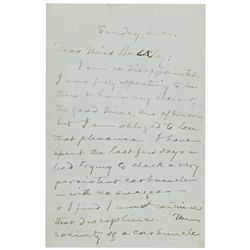 Sunday, a.m.
Dear Miss Buckly:
I am so disappointed.
I was fully expecting to be
there & have my share of
the good times, this afternoon
but I am obliged to lose
that pleasure. I have
spent the last few days in
bed trying to check a very
persistent carbuncle
— with no success —
& find I must continue
that discipline. The
society of a carbuncle